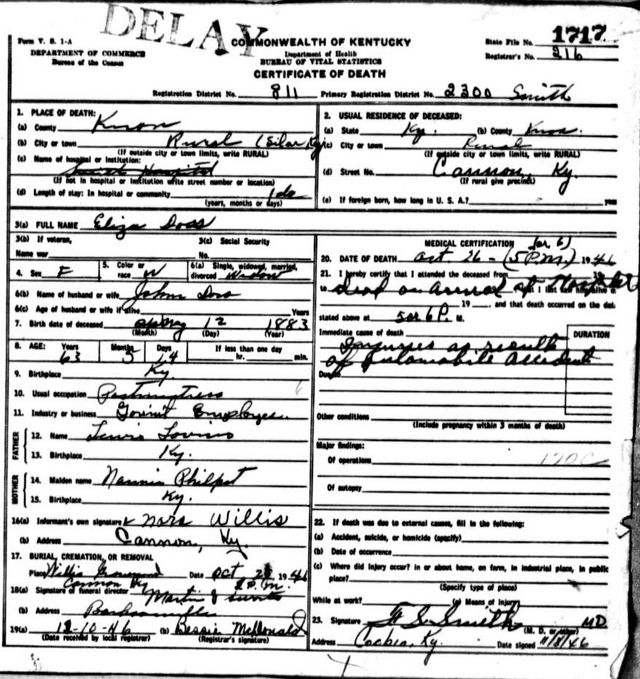 DELAY
Form V. S. 1-A
DEPARTMENT OF COMMERCE
Bureau of the Census
COMMONWEALTH OF KENTUCKY
Department of Health
BUREAU OF VITAL STATISTICS
CERTIFICATE OF DEATH
State File No. 1717
Registrar's No. 216
Registration District No. 811 Primary Registration District No. 2300 Smith
1. PLACE OF DEATH:
(a) County Knox
(b) City or town Rural (Siler, Ky)
(If outside city or town limits, write RURAL)
(c) Name of hospital or institution:
Smith Hospital
(If not in hospital or institution write street number or location)
(d) Length of stay: In hospital or community
(years, months or days)
2. USUAL RESIDENCE OF DECEASED:
(a) State Ky. (b) County Knox.
(c) City or town Rural
(If outside city or town limits, write RURAL)
(d) Street No. Cannon, Ky.
(If rural give precinct)
(e) If foreign born, how long in U. S. A.? years
3(a) FULL NAME Eliza Doss
3(b) If veteran,
Name war
3(c) Social Security
No.
4. Sex F
5. Color or race W
6(a) Single, widowed, married, divorced Widow
6(b) Name of husband or wife John Doss
6(c) Age of husband or wife if alive Years
7. Birth date of deceased 12 1883
(Month) (Day) (Year)
8. AGE: Years Months Days If less than one day
63 5 14 hr. min.
9. Birthplace Ky.
10. Usual occupation Postmistress
11. Industry or business Govmt Employee.
FATHER
12. Name Lewis
13. Birthplace Ky.
MOTHER
14. Maiden name Nannie Philpot
15. Birthplace Ky.
16(a) Informant's own signature x Nora Willis
(b) Address Cannon, Ky.
17. BURIAL, CREMATION, OR REMOVAL
Place Willis Graveyard Date Oct 28 1946
Cannon Ky 2 P.M.
18(a) Signature of funeral director Martin &
(b) Address Barbourville
19(a) 12-10-46 (b) Bessie McDonald
(Date received by local registrar) (Registrar's signature)
MEDICAL CERTIFICATION (or 6)
20. DATE OF DEATH Oct 26 - (5 P.M.) 1946
21. I hereby certify that I attended the deceased from
to dead on arrival at Hospital
19 and that death occurred on the date
stated above at 5 or 6 P. M.
Immediate cause of death
DURATION
Injuries as result
of automobile accident
Due to
Other conditions
(Include pregnancy within 3 months of death)
Major findings:
Of operations
Of autopsy
22. If death was due to external causes, fill in the following:
(a) Accident, suicide, or homicide (specify)
(b) Date of occurrence
(c) Where did injury occur? In or about home, on farm, in industrial place, in public place?
(Specify type of place)
While at work? (e) Means of injury
23. Signature Smith MD
(M. D. or other)
Address Corbin, Ky. Date signed 11/8/46